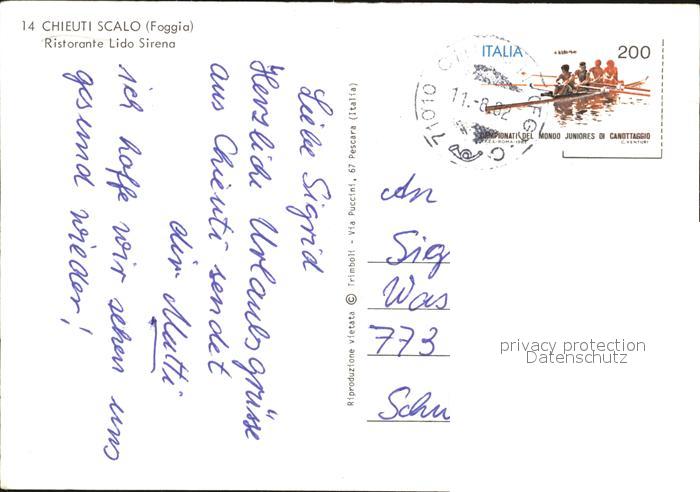 14 CHIEUTI SCALO (Foggia)
Ristorante Lido Sirena
Liebe Sigrid
Herzliche Urlaubsgrüsse
aus Chieuti sendet
dir Mutti
ich hoffe wir sehen uns
gesund wieder!
Riproduzione vietata © Trimboli - Via Puccini, 67 Pescara (Italia)
ITALIA 200
CAMPIONATI DEL MONDO JUNIORES DI CANOTTAGGIO
C. VENTURI
71010
11.-8.82
An
Sig
Was
773
Schu
privacy protection
Datenschutz